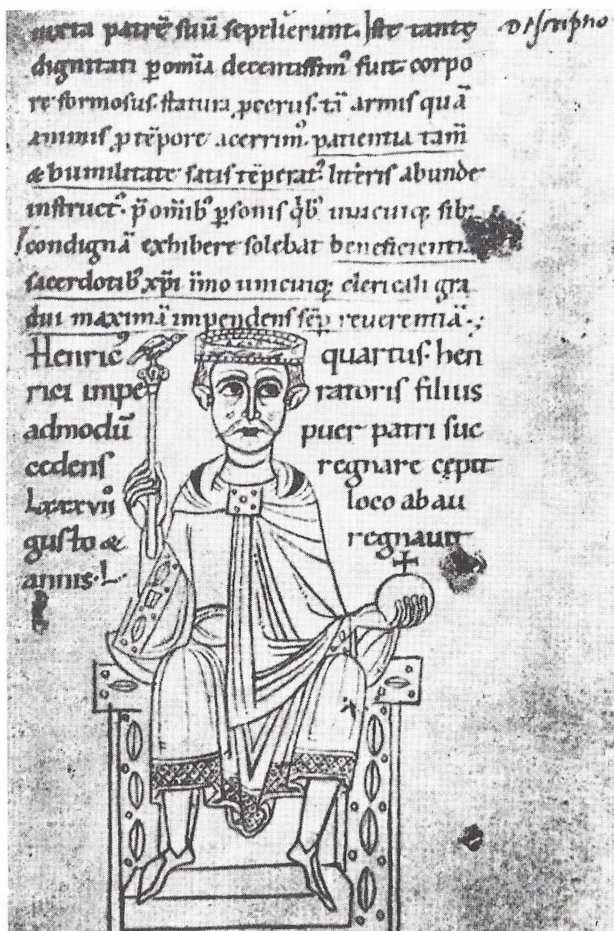 iuxta patrē suū sepelierunt. Iste tantę
dignitati p omīa decentissim᷒ fuit. corpo
re formosus. statura pcerus. tā armis quā
animis p tēpore acerrim᷒. patientia tam̄
& humilitate satis tēperat᷒. litteris abunde
instruct᷒. p̄ omīb᷒ psonis qb᷒ unicuiq; sibi
condignā exhibere solebat beneficientiā
sacerdotib᷒ xp̄i im̄o unicuiq; clericali gra
dui maximā impendens sēp reuerentiā.
Descriptio
Henric᷒ quartus. hen
rici imperatoris filius
admodū puer patri suc
cedens regnare cępit
lxxxvii᷒ loco ab au
gusto & regnauit
annis. L